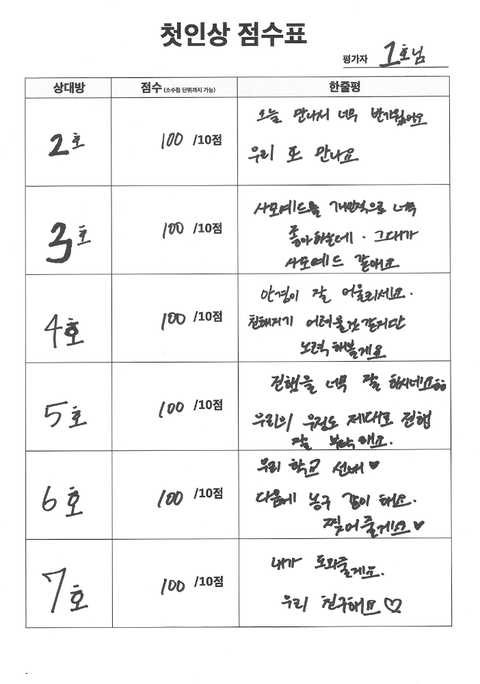 첫인상 점수표
평가자 1호님
상대방 점수 (소수점 단위까지 가능) 한줄평
2호 100 /10점
오늘 만나서 너무 반가웠어요
우리 또 만나요
3호 100 /10점
사모예드를 개인적으로 너무
좋아하는데. 그대가
사모예드 같애요
4호 100 /10점
안경이 잘 어울리세요.
친해지기 어려울것 같지만
노력해볼게요
5호 100 /10점
진행을 너무 잘 하시네요ㅎㅎ
우리의 우정도 제대로 진행
잘 부탁해요.
6호 100 /10점
우리 학교 선배♥
다음에 농구 같이 해요.
찢어줄게요♥
7호 100 /10점
내가 도와줄게요.
우리 친구해요♡